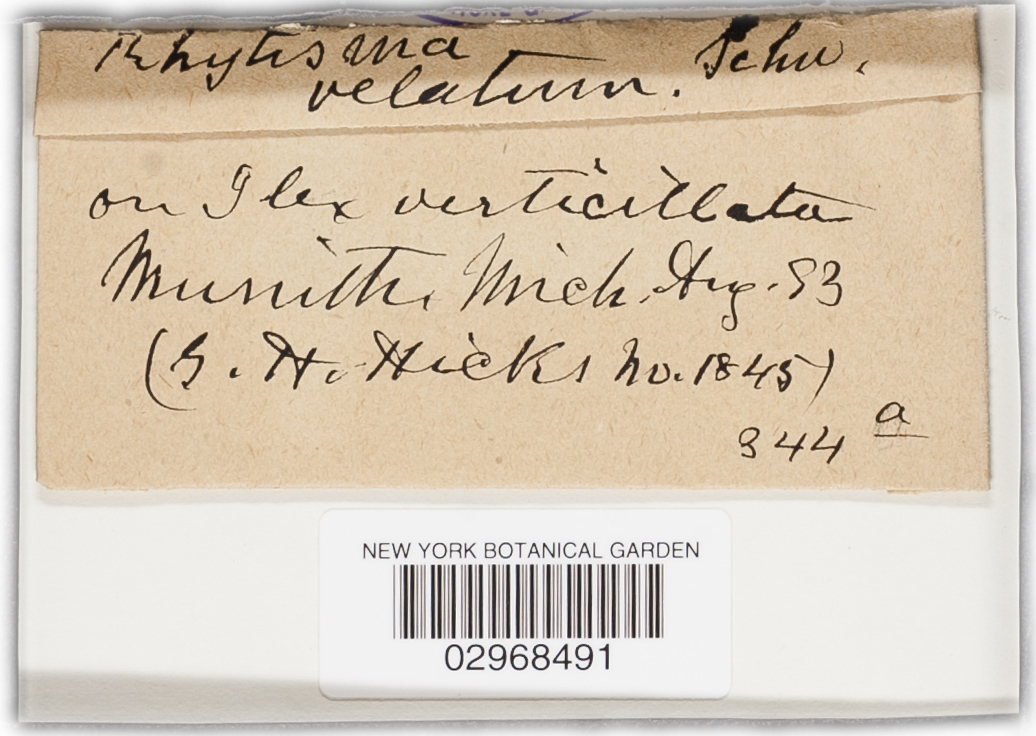 Rhytisma
velatum. Schw.
on Ilex verticillata
Munith, Mich. Aug. 93
(G. H. Hicks No. 1845)
344 a
NEW YORK BOTANICAL GARDEN
02968491